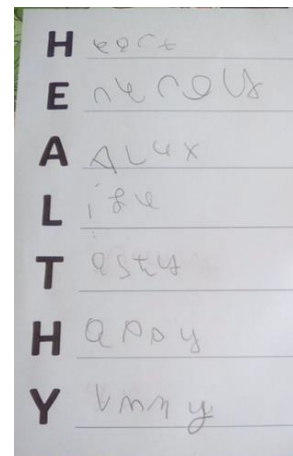 H eart
E nergy
A ALex
L ife
T asty
H appy
Y ummy